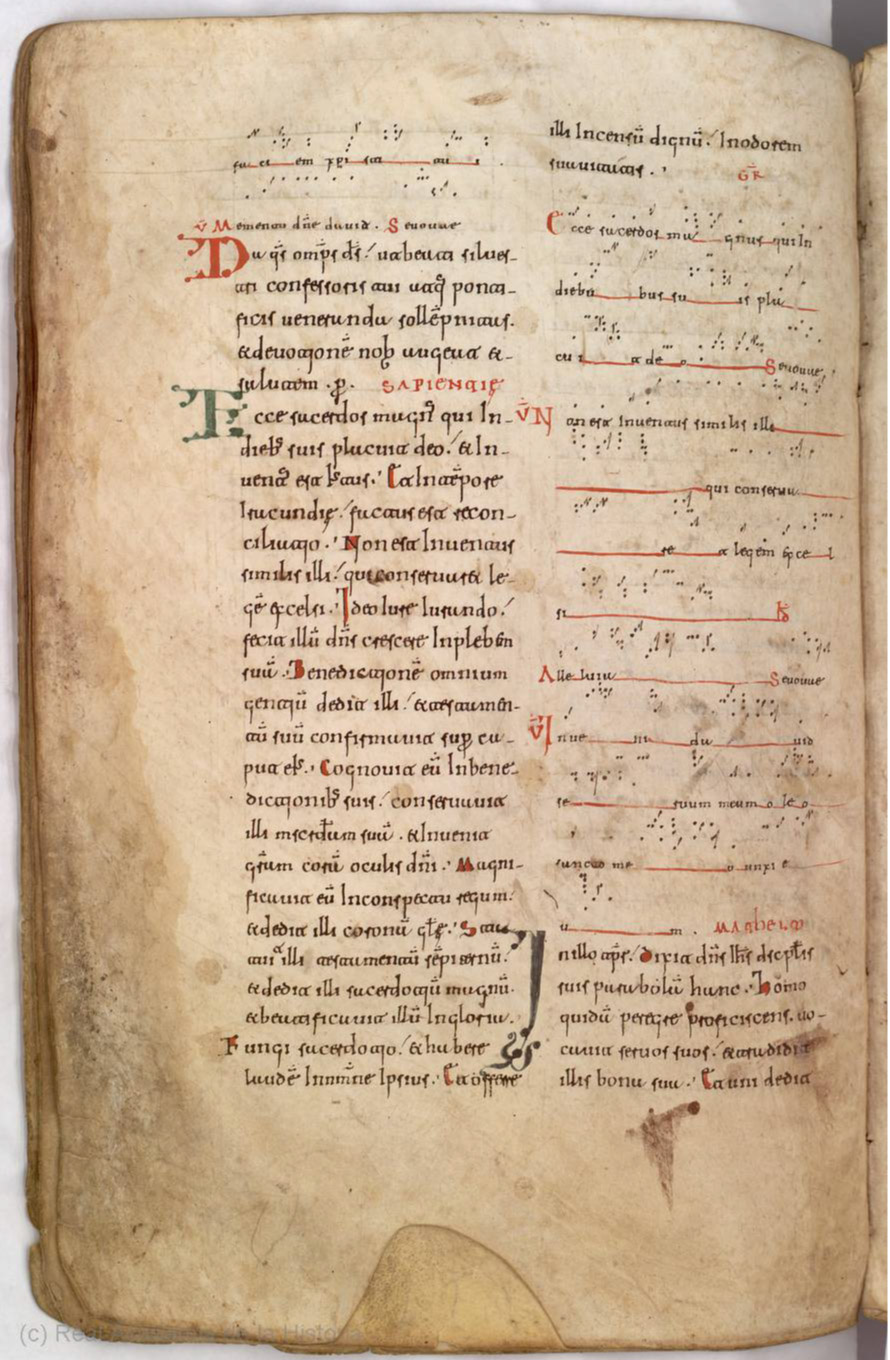 faci em xpi sta tu i .
V̄ Memento dn̄e dauid . Seuouae
Da q̄s omp̄s ds̄ / ut beati silues-
tri confessoris tui atq̄ ponti-
ficis ueneranda sollēpnitas.
& deuotionē nob̄ augeat &-
salutem . p̄ . SAPIENTIĘ
Ecce sacerdos magn᷒ qui In-
dieb᷒ suis placuit deo / & In-
uent᷒ est Iust᷒ . Et In tēpore
Iracundię / factus est recon-
ciliatio . Non est Inuentus
similis illi / qui conseruaret le-
gē excelsi . Ideo Iure Iurando /
fecit illū dn̄s crescere In plebem
suā . Benedictionē omnium
gentiū dedit illi / & testamen-
tū suū confirmauit sup̄ ca-
put ei᷒ . Cognouit eū In bene-
dictionib᷒ suis / conseruauit
illi mīscđiam suā . & Inuenit
gr̄am corā oculis dn̄i . Magni-
ficauit eū In conspectu regum .
& dedit illi coronā głę . Sta-
tuit illi testamentū sēpiternū .
& dedit illi sacerdotiū magnū .
& beatificauit illū In gloria .
Fungi sacerdotio / & habere
laudē In nomīne Ipsius . Et offerre
illi Incensū dignū / In odorem
suauitatis . GR̄
Ecce sacerdos ma gnus qui In
dieb us su is pla
cu i t de o Seuouae
V̄ Non est Inuentus similis illi
qui conserua
re t legem exce l
si
Alle luia Seuouae
V̄ Inue ni da uid
se ruum meum o le o
sancto me o unxi e
u m . MATHEUM
In illo tp̄r / dixit dn̄s Ih̄s discpłis
suis parabolā hanc . Homo
quidā peregre proficiscens . uo-
cauit seruos suos / & tradidit
illis bona sua . Et uni dedit
(c) Real Academia de la Historia